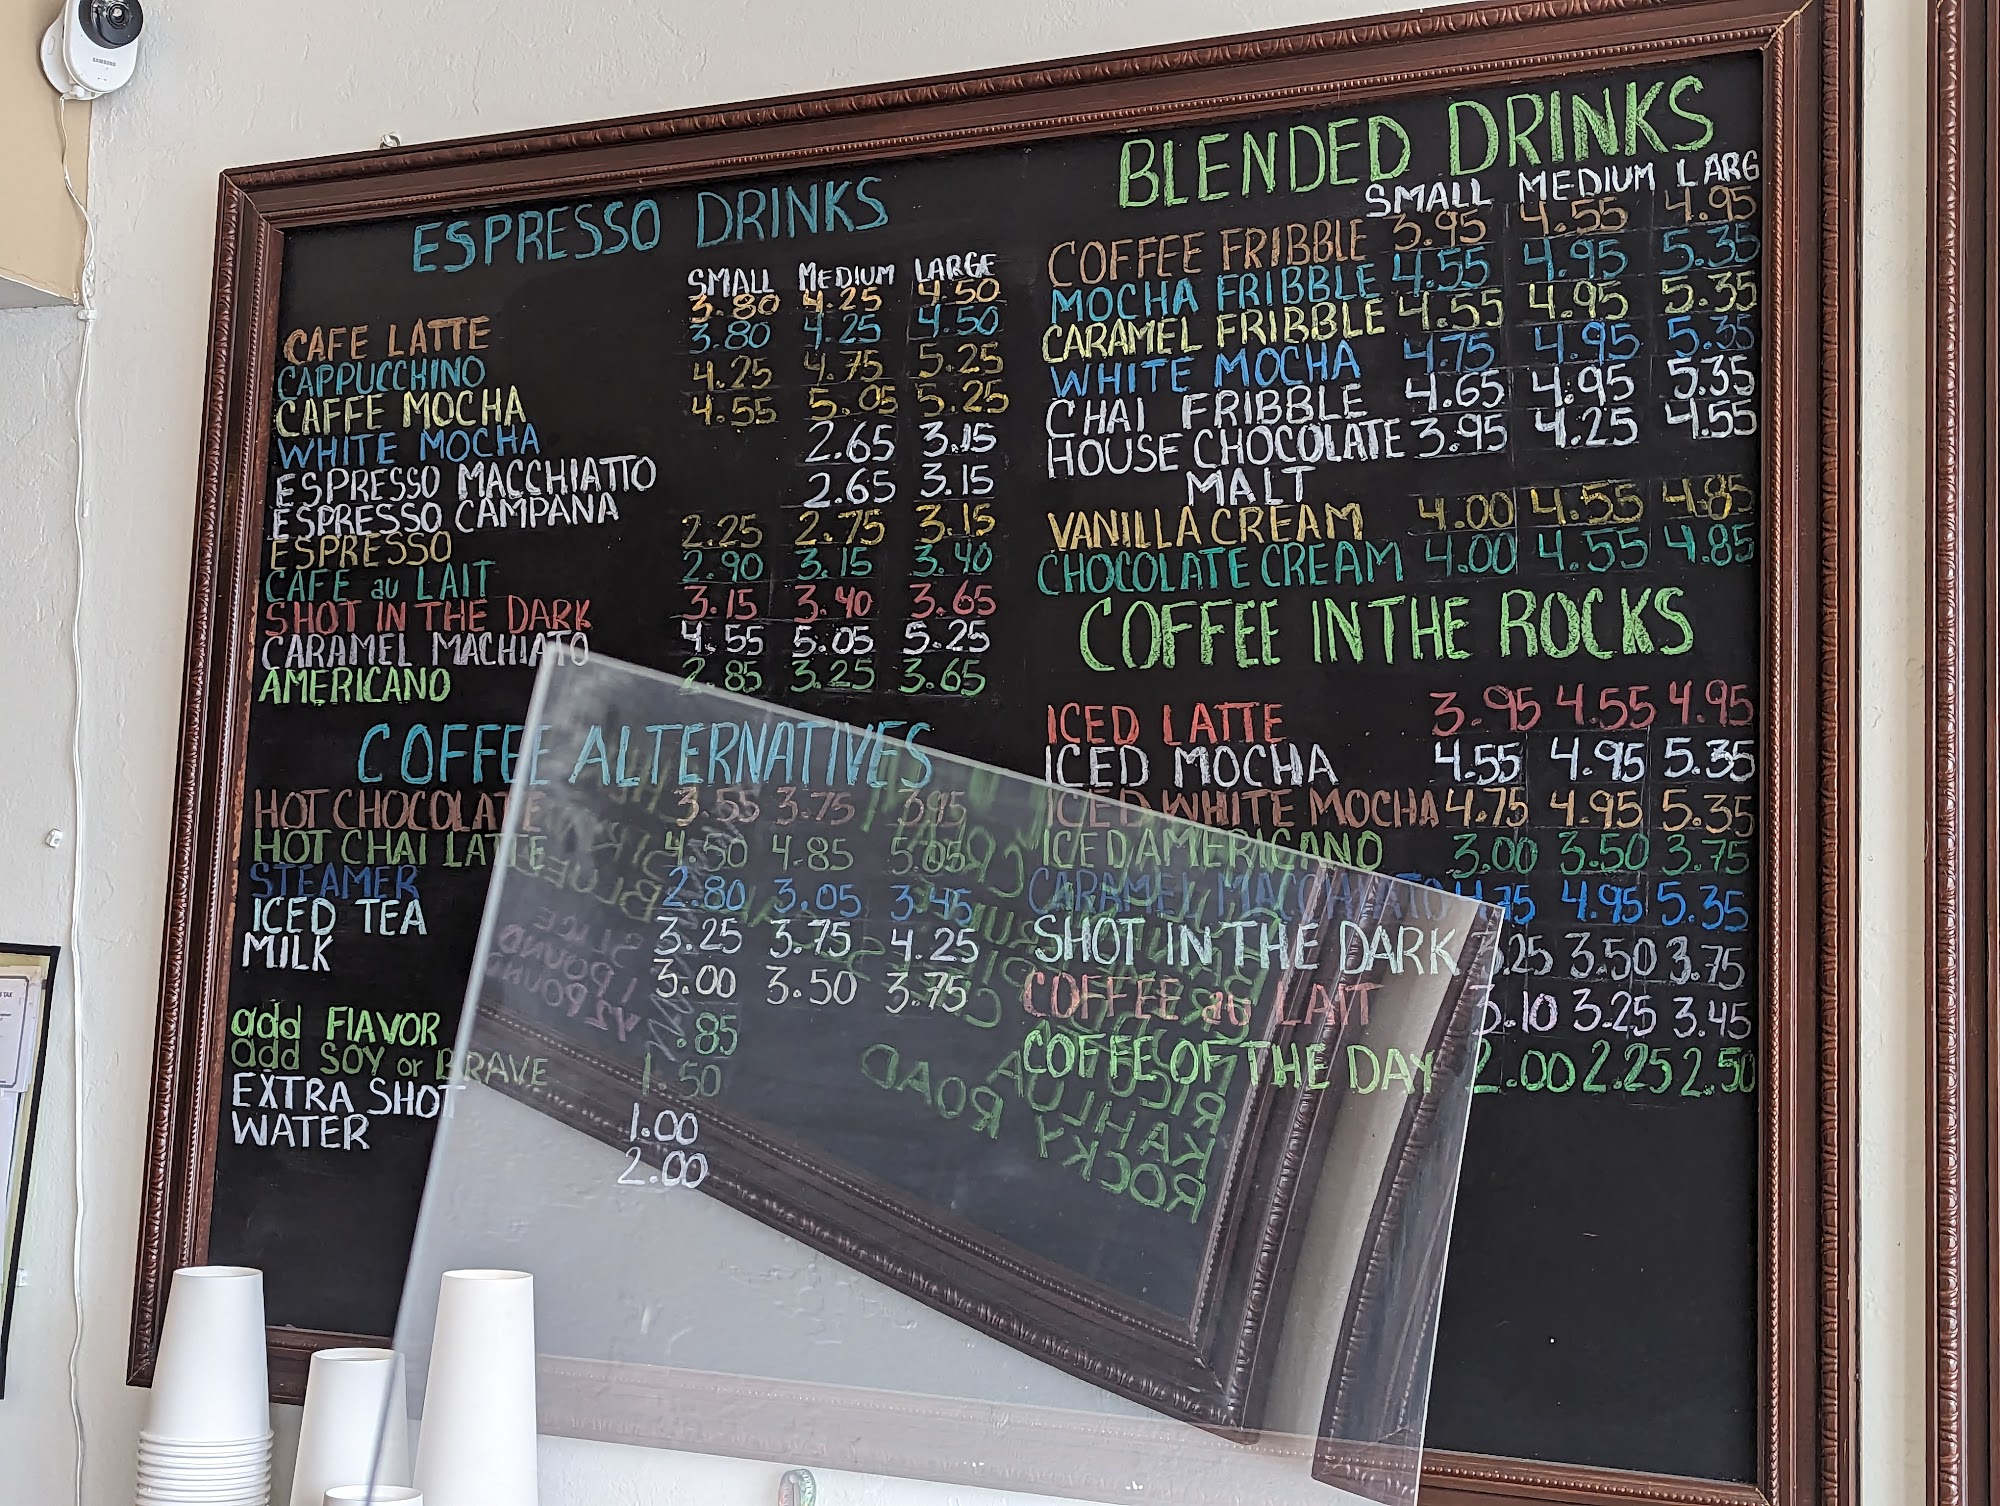 SAMSUNG
ESPRESSO DRINKS
SMALL MEDIUM LARGE
CAFE LATTE 3.80 4.25 4.50
CAPPUCCHINO 3.80 4.25 4.50
CAFFE MOCHA 4.25 4.75 5.25
WHITE MOCHA 4.55 5.05 5.25
ESPRESSO MACCHIATTO 2.65 3.15
ESPRESSO CAMPANA 2.65 3.15
ESPRESSO 2.25 2.75 3.15
CAFE au LAIT 2.90 3.15 3.40
SHOT IN THE DARK 3.15 3.40 3.65
CARAMEL MACHIATO 4.55 5.05 5.25
AMERICANO 2.85 3.25 3.65
COFFEE ALTERNATIVES
HOT CHOCOLATE 3.55 3.75 3.95
HOT CHAI LATTE 4.50 4.85 5.05
STEAMER 2.80 3.05 3.45
ICED TEA 3.25 3.75 4.25
MILK 3.00 3.50 3.75
add FlAVOR .85
add SOY or BRAVE 1.50
EXTRA SHOT 1.00
WATER 2.00
BLENDED DRINKS
SMALL MEDIUM LARG
COFFEE FRIBBLE 3.95 4.55 4.95
MOCHA FRIBBLE 4.55 4.95 5.35
CARAMEL FRIBBLE 4.55 4.95 5.35
WHITE MOCHA 4.75 4.95 5.35
CHAI FRIBBLE 4.65 4.95 5.35
HOUSE CHOCOLATE 3.95 4.25 4.55
MALT
VANILLA CREAM 4.00 4.55 4.85
CHOCOLATE CREAM 4.00 4.55 4.85
COFFEE IN THE ROCKS
ICED LATTE 3.95 4.55 4.95
ICED MOCHA 4.55 4.95 5.35
ICED WHITE MOCHA 4.75 4.95 5.35
ICED AMERICANO 3.00 3.50 3.75
CARAMEL MACCHIATO 4.75 4.95 5.35
SHOT IN THE DARK 3.25 3.50 3.75
COFFEE au LAIT 3.10 3.25 3.45
COFFEE OF THE DAY 2.00 2.25 2.50
KAHLUA
ROCKY ROAD